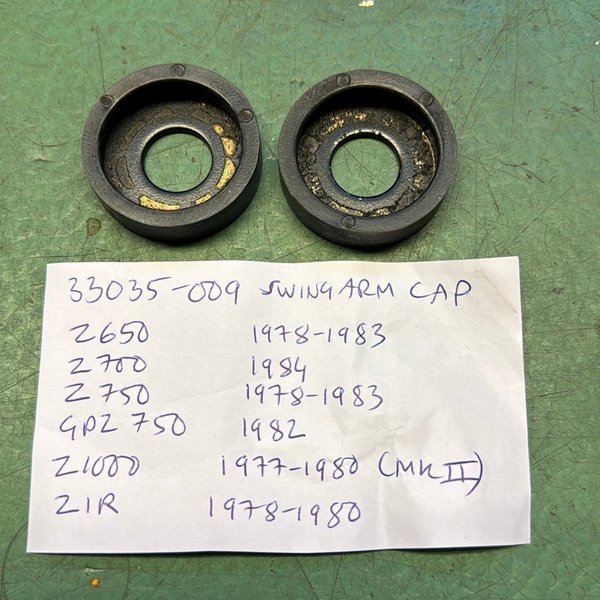 33035-009 SWING ARM CAP
Z650 1978-1983
Z700 1984
Z750 1978-1983
GPZ 750 1982
Z1000 1977-1980 (MK II)
Z1R 1978-1980